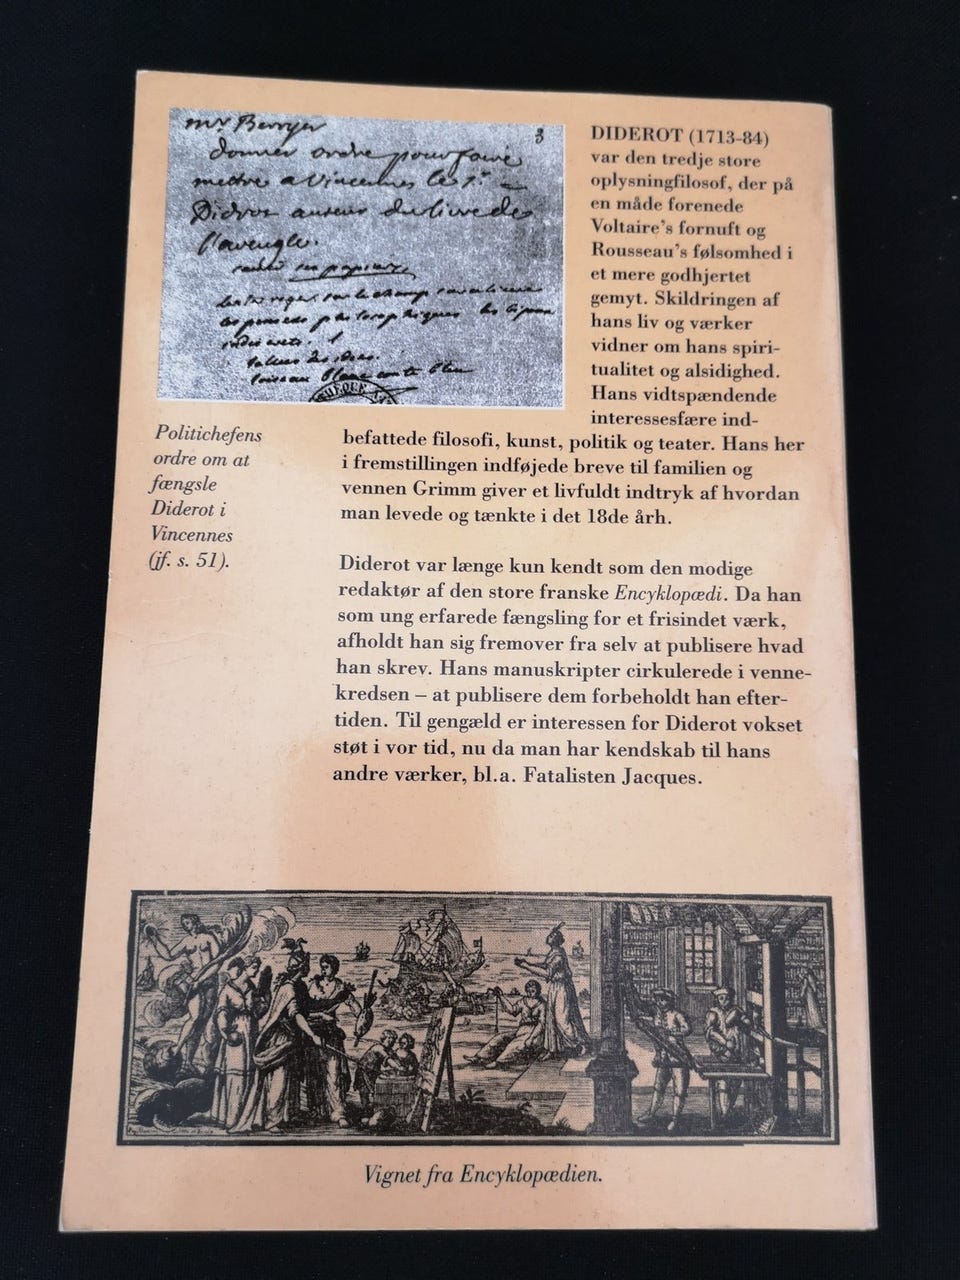 mr Berryer
3
donner ordre pour faire
mettre a Vincennes le Sr
Didrot auteur du livre de
l'aveugle.
DIDEROT (1713-84)
var den tredje store
oplysningfilosof, der på
en måde forenede
Voltaire's fornuft og
Rousseau's følsomhed i
et mere godhjertet
gemyt. Skildringen af
hans liv og værker
vidner om hans spiri-
tualitet og alsidighed.
Hans vidtspændende
interessesfære ind-
befattede filosofi, kunst, politik og teater. Hans her
i fremstillingen indføjede breve til familien og
vennen Grimm giver et livfuldt indtryk af hvordan
man levede og tænkte i det 18de årh.
Politichefens
ordre om at
fængsle
Diderot i
Vincennes
(jf. s. 51).
Diderot var længe kun kendt som den modige
redaktør af den store franske Encyklopædi. Da han
som ung erfarede fængsling for et frisindet værk,
afholdt han sig fremover fra selv at publisere hvad
han skrev. Hans manuskripter cirkulerede i venne-
kredsen – at publisere dem forbeholdt han efter-
tiden. Til gengæld er interessen for Diderot vokset
støt i vor tid, nu da man har kendskab til hans
andre værker, bl.a. Fatalisten Jacques.
Vignet fra Encyklopædien.